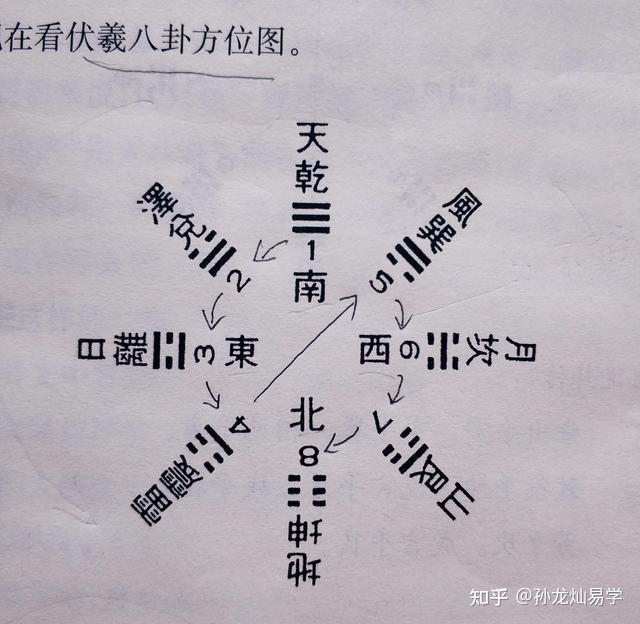 在看伏羲八卦方位图。
天
乾
1
南
澤兌2
風巽5
日離3東
西6坎月
雷震4
7艮山
北
8
坤
地
知乎 @孙龙灿易学